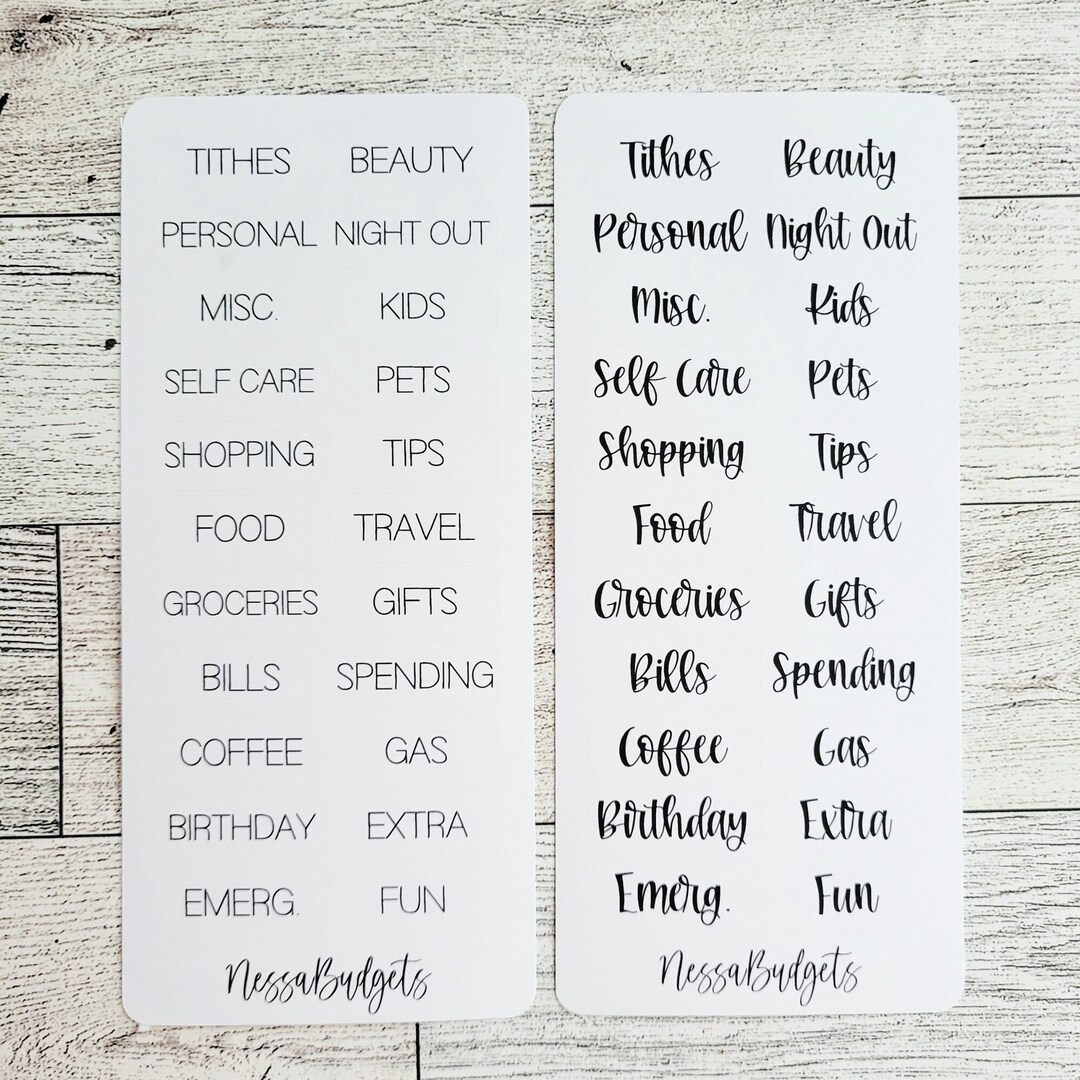 TITHES BEAUTY
PERSONAL NIGHT OUT
MISC. KIDS
SELF CARE PETS
SHOPPING TIPS
FOOD TRAVEL
GROCERIES GIFTS
BILLS SPENDING
COFFEE GAS
BIRTHDAY EXTRA
EMERG. FUN
NessaBudgets
Tithes Beauty
Personal Night Out
Misc. Kids
Self Care Pets
Shopping Tips
Food Travel
Groceries Gifts
Bills Spending
Coffee Gas
Birthday Extra
Emerg. Fun
NessaBudgets